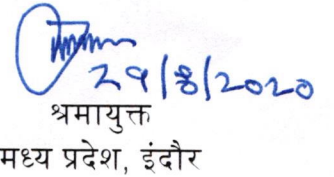 29/8/2020
श्रमायुक्त
मध्य प्रदेश, इंदौर